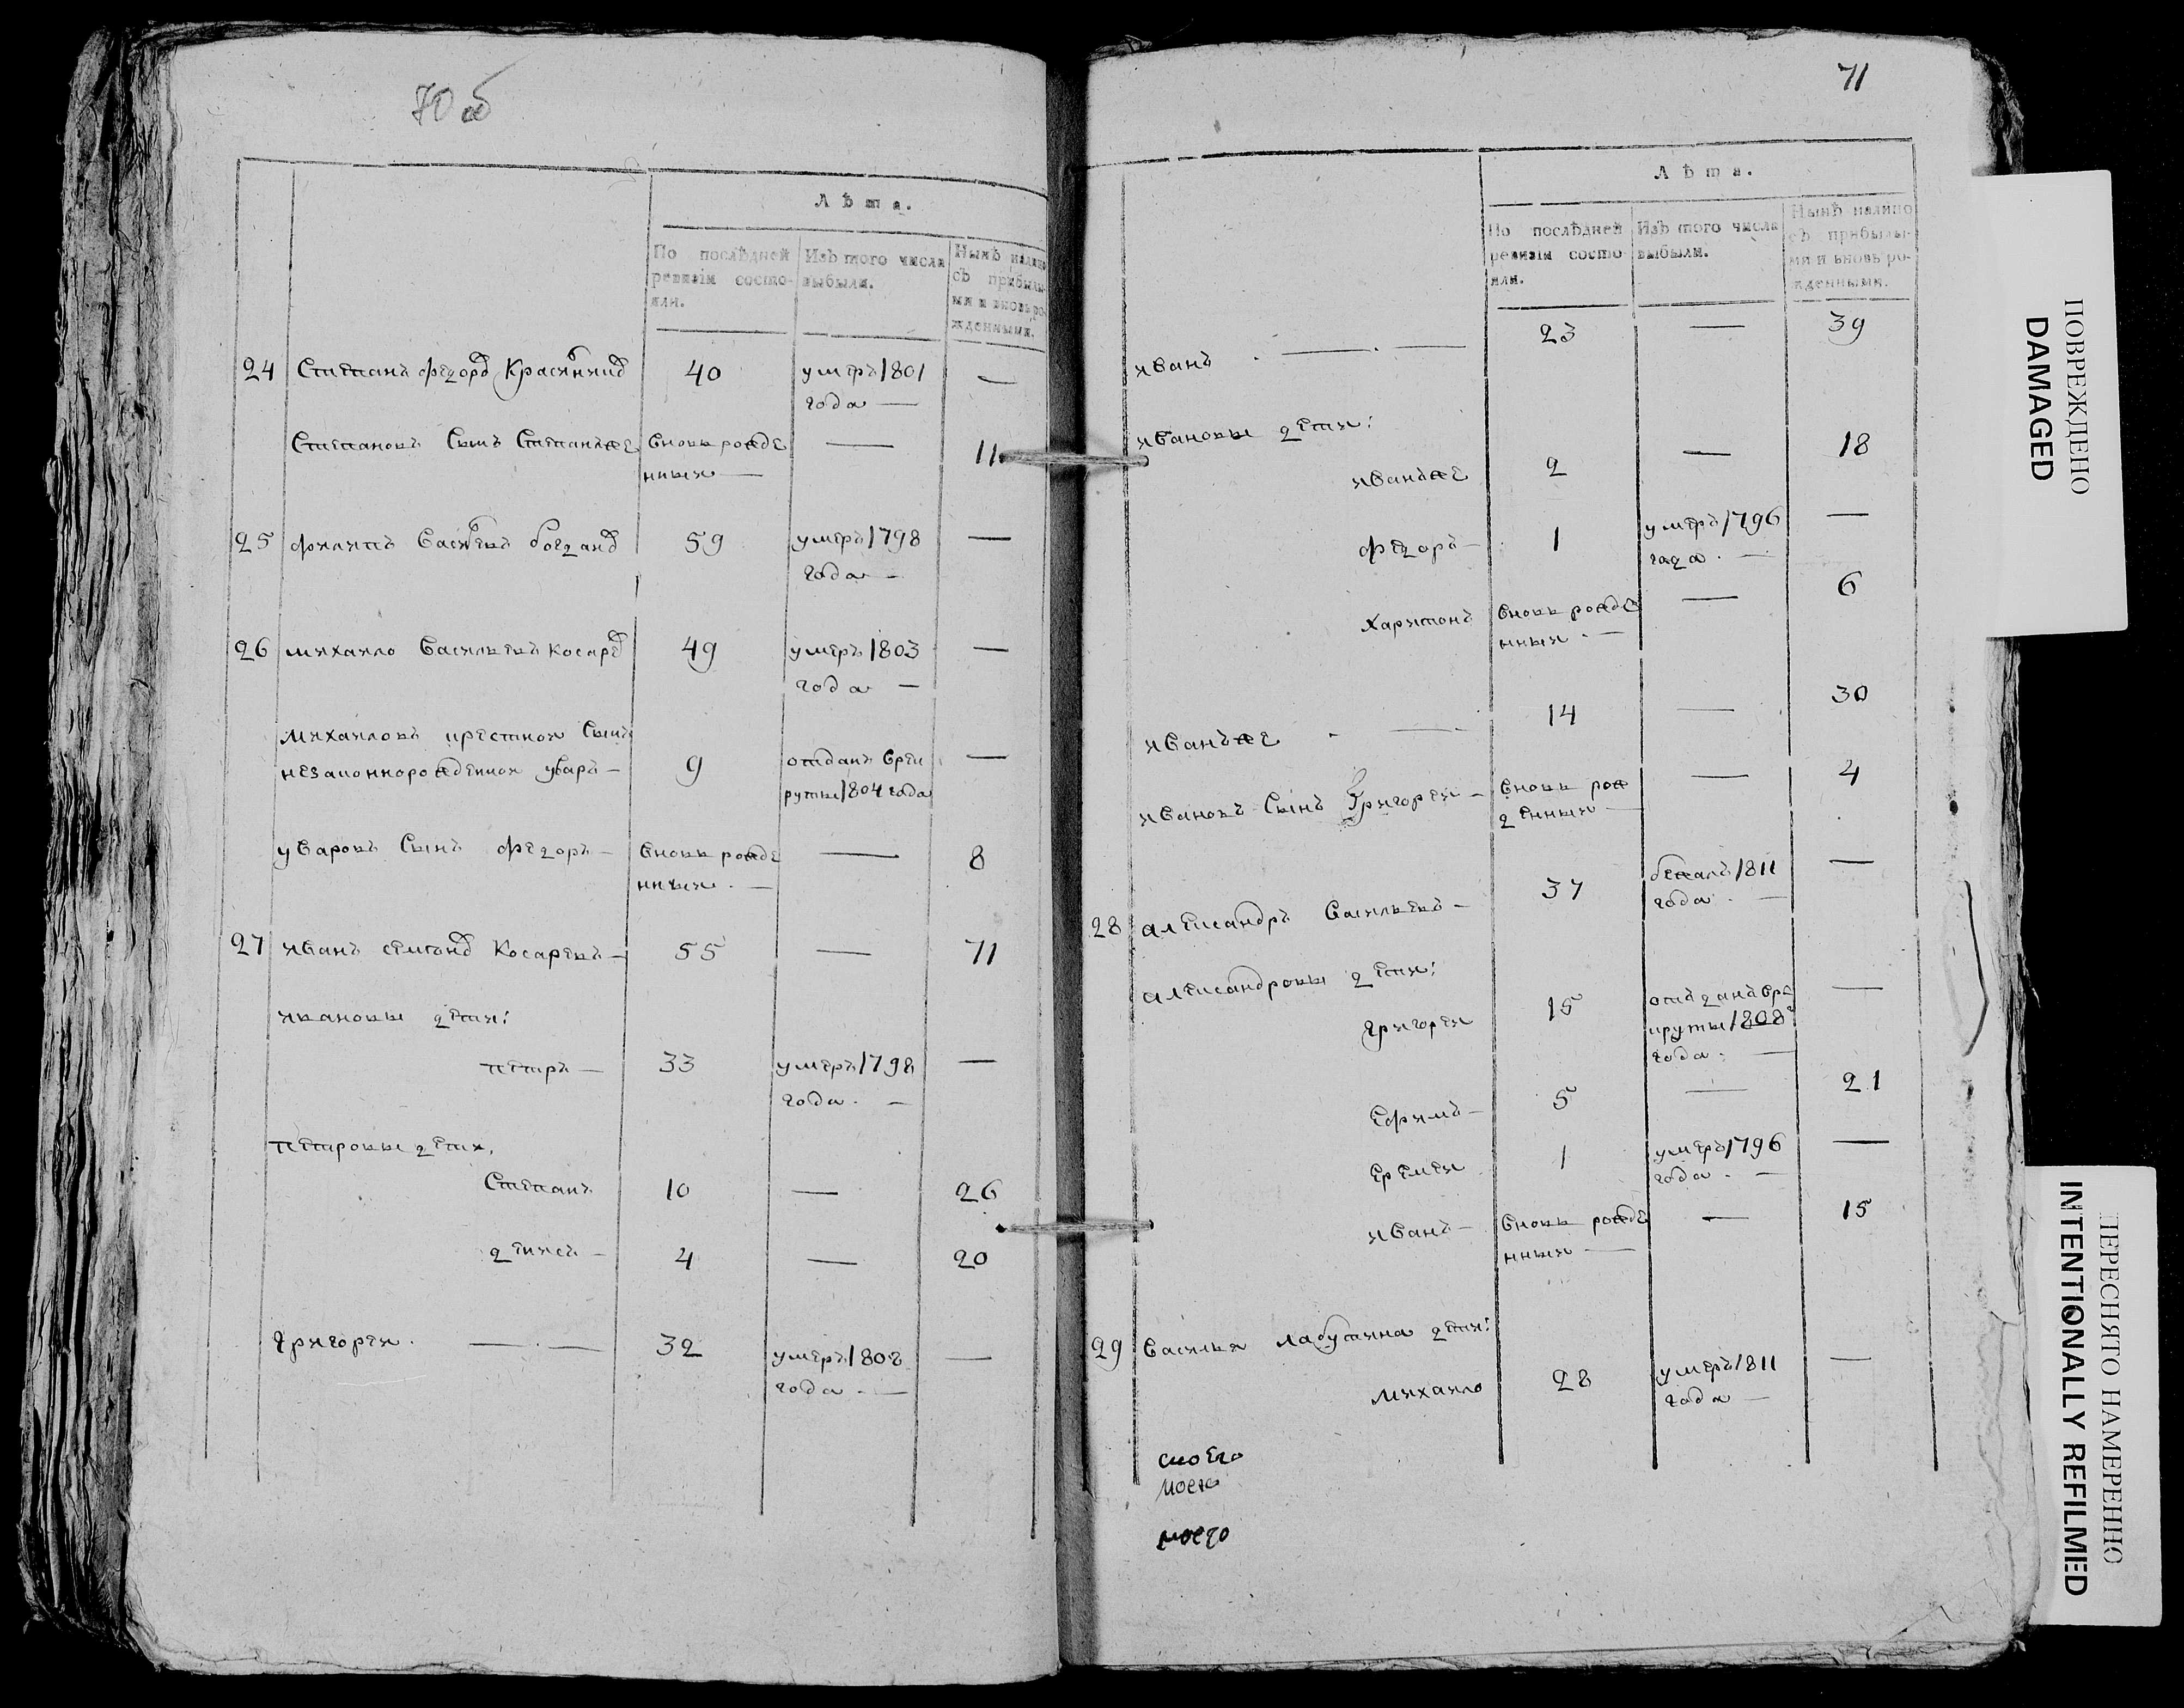 70 об
Лѣта.
По послѣдней Изъ того числа Нынѣ налицо
ревизіи состо- выбыли. съ прибылы-
яли. ми и вновь ро-
жденными.
24 Степанъ Федоров 40 умеръ 1801 —
года —
Степановъ Сынъ Степанъже вновь рожде — 11
нныи —
25 Филипъ Василевъ 59 умеръ 1798 —
года —
26 михаило Васильевъ Косарев 49 умеръ 1803 —
года —
михаиловъ приемнои Сынъ
незаконнорожденнои уваръ — 9 отданъВрек —
руты 1804 года
уваровъ Сынъ Федоръ — вновь рожде — 8
нныи —
27 иванъ семенов Косаревъ — 55 — 71
ивановы дети:
петръ — 33 умеръ 1798 —
года —
петровы дети,
Степанъ 10 — 26
денисъ — 4 — 20
григореи — 32 умеръ 1808 —
года —
71
Лѣта.
По послѣдней Изъ того числа Нынѣ налицо
ревизіи состо- выбыли. съ прибылы-
яли. ми и вновь ро-
жденными.
иванъ — 23 — 39
ивановы дети:
иванъже 2 — 18
Федоръ — 1 умеръ 1796 —
года —
Харитонъ вновь рожде — 6
нныи —
иванъже — 14 — 30
ивановъ Сынъ Григореи — вновь рож — 4
денныи —
28 александръ Васильевъ — 37 бежалъ 1811 —
года —
александровы дети:
григореи 15 отъданъ Вре —
круты 1808г
года —
Ефимъ — 5 — 21
Еремеи 1 умеръ 1796 —
года —
иванъ — вновь рожде — 15
нныи —
29 Василья лабутина дети:
михаило 28 умеръ 1811 —
года —
моего
ПОВРЕЖДЕНО
DAMAGED
ПЕРЕСНЯТО НАМЕРЕННО
INTENTIONALLY REFILMED